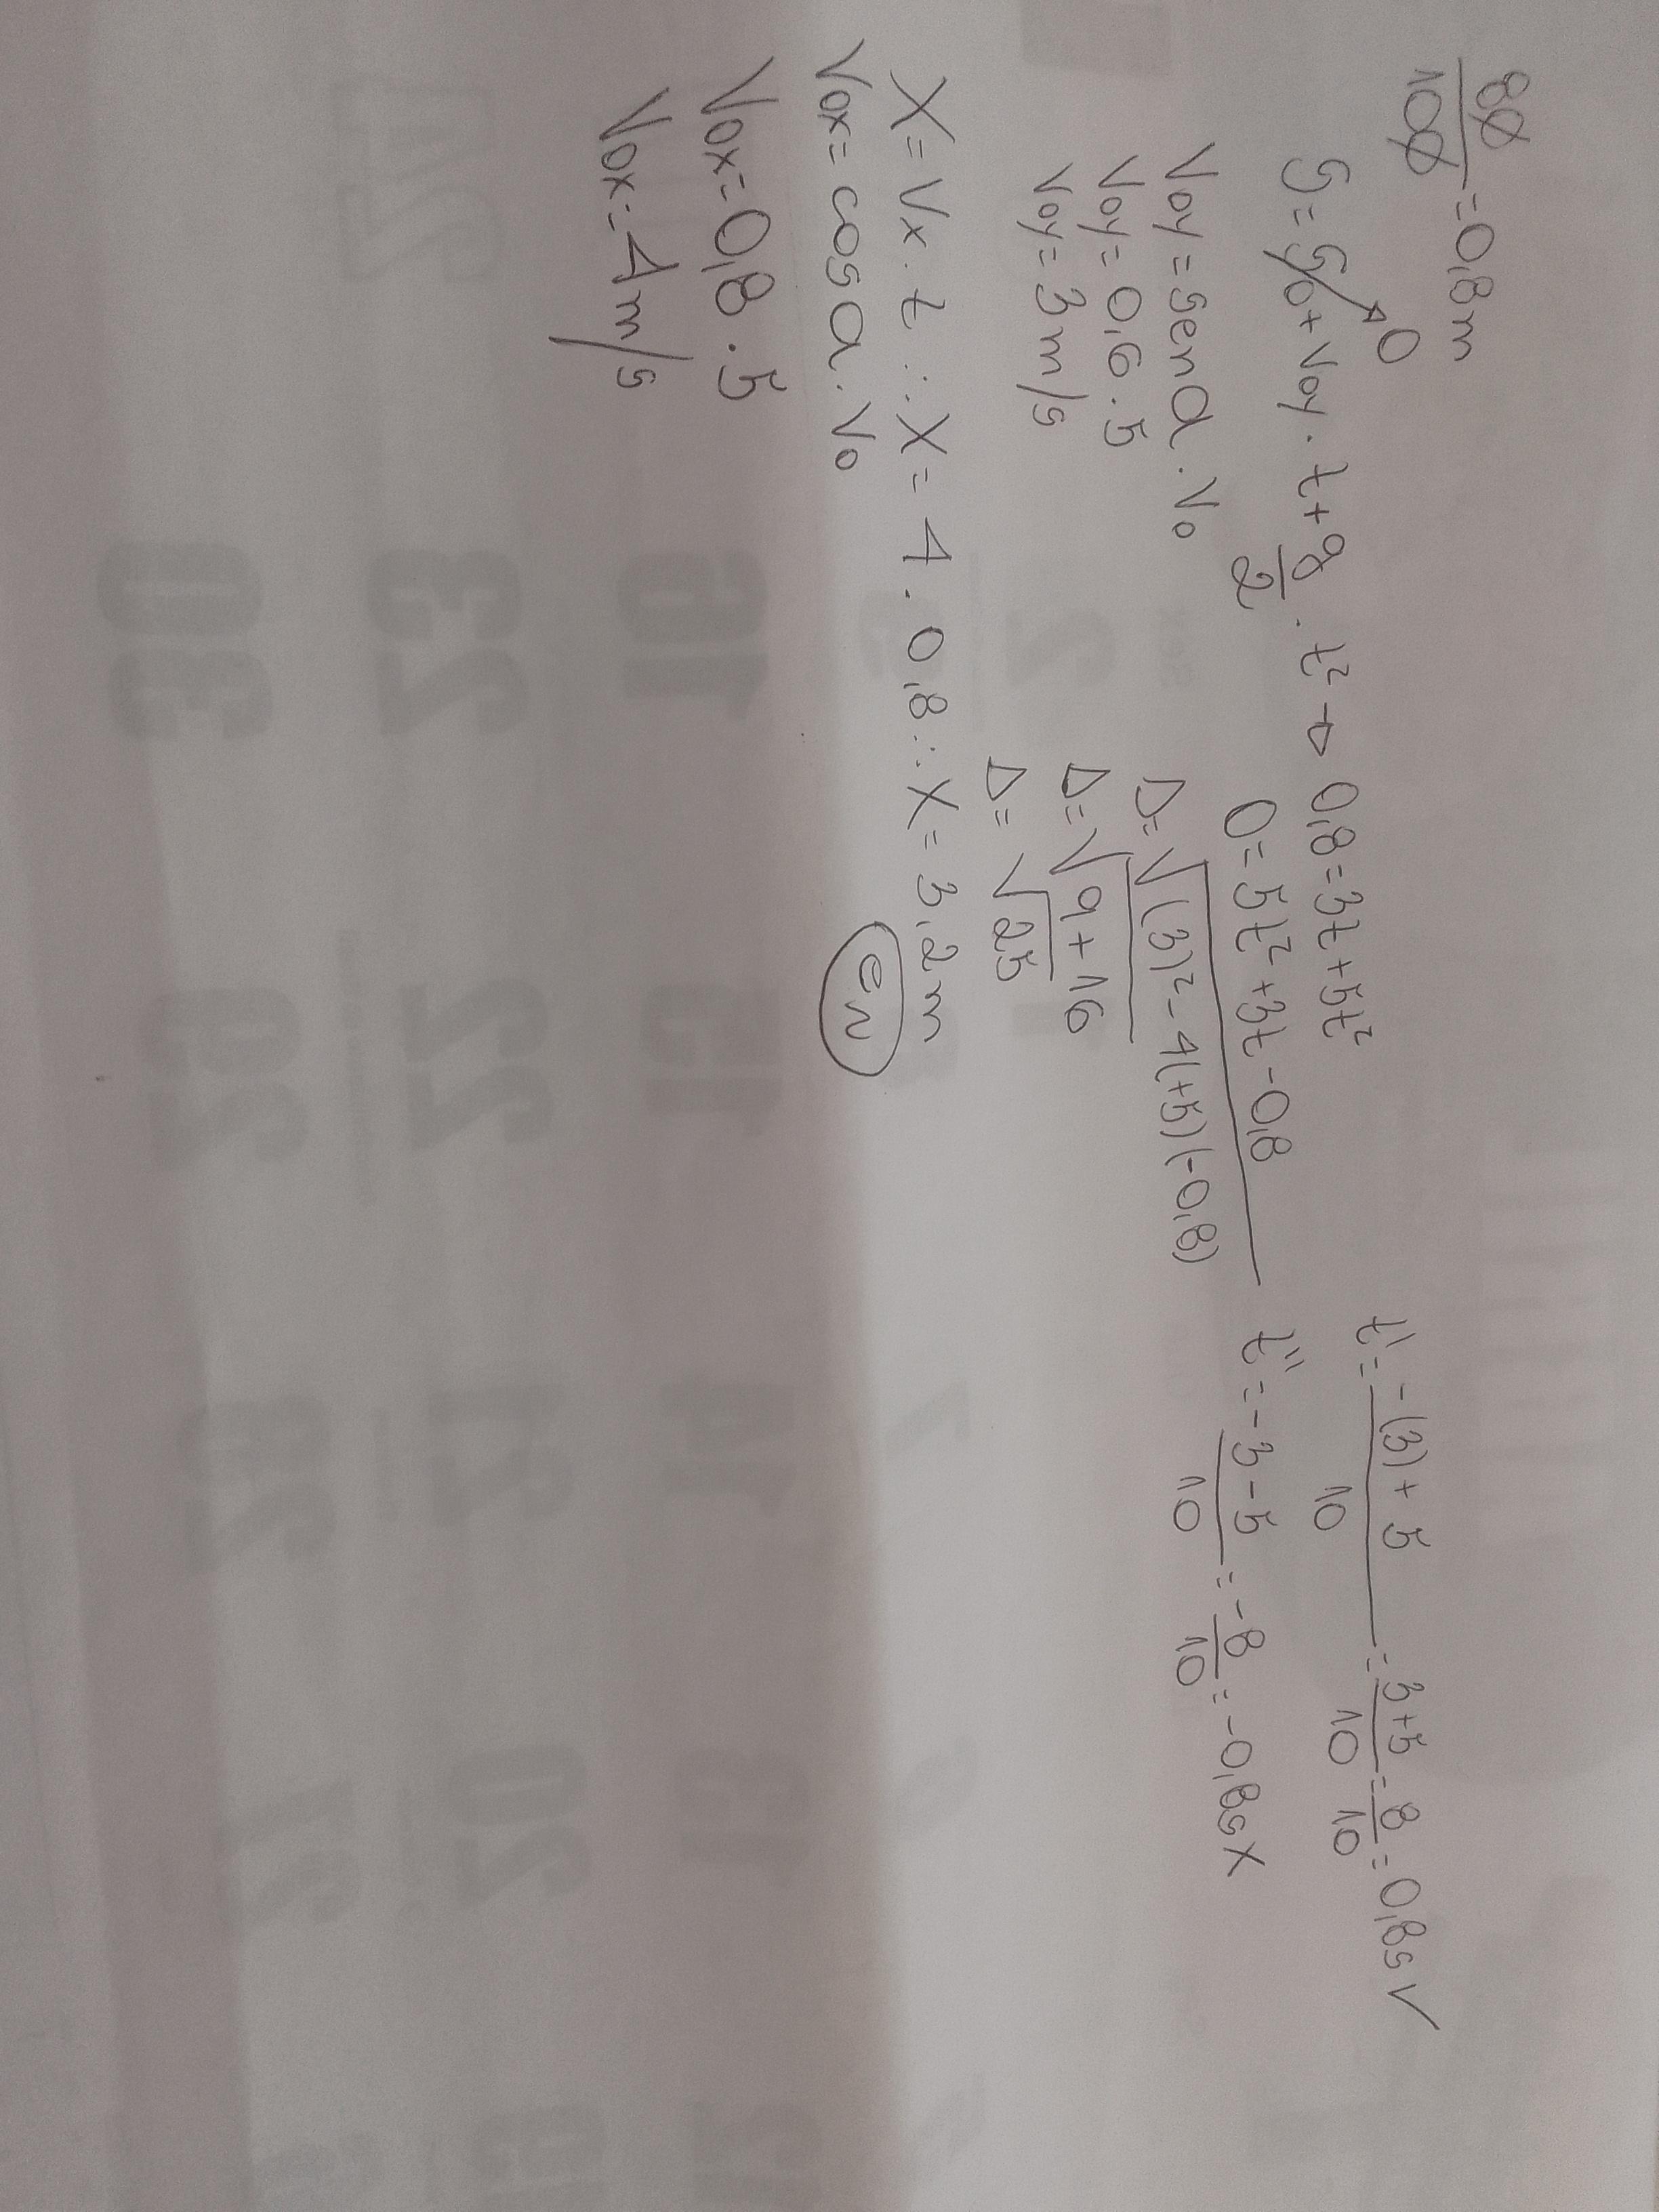 80/100 = 0,8m
S = S0 + Voy . t + g/2 . t² → 0,8 = 3t + 5t²
0
Voy = sen a . Vo
Voy = 0,6 . 5
Voy = 3 m/s
0 = 5t² + 3t - 0,8
Δ = √(3)² - 4(+5)(-0,8)
Δ = √9 + 16
Δ = √25
t' = -(3) + 5/10 = 3+5/10 = 8/10 = 0,8s ✓
t'' = -3 - 5/10 = -8/10 = -0,8s X
X = Vx . t ∴ X = 4 . 0,8 ∴ X = 3,2m
Vox = cos a . Vo
en
Vox = 0,8 . 5
Vox = 4m/s